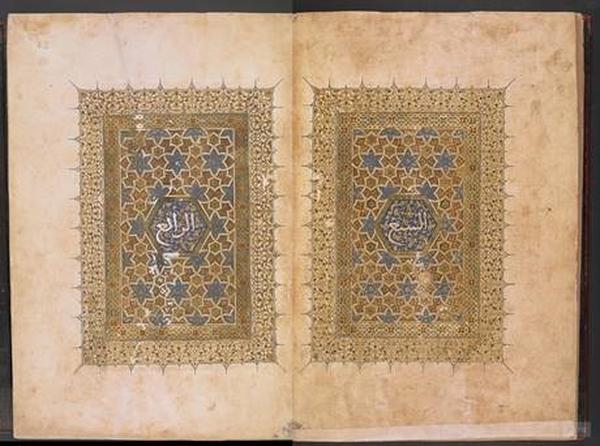 السبع
الرابع